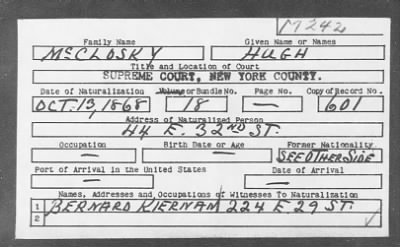 M242
Family Name Given Name or Names
McCLOSKY HUGH
Title and Location of Court
SUPREME COURT, NEW YORK COUNTY.
Date of Naturalization Volume or Bundle No. Page No. Copy of Record No.
OCT. 13, 1868 18 — 601
Address of Naturalized Person
44 E. 32ND ST.
Occupation Birth Date or Age Former Nationality
— — SEE OTHER SIDE
Port of Arrival in the United States Date of Arrival
— —
Names, Addresses and Occupations of Witnesses To Naturalization
1 BERNARD KIERNAN 224 E. 29 ST.
2